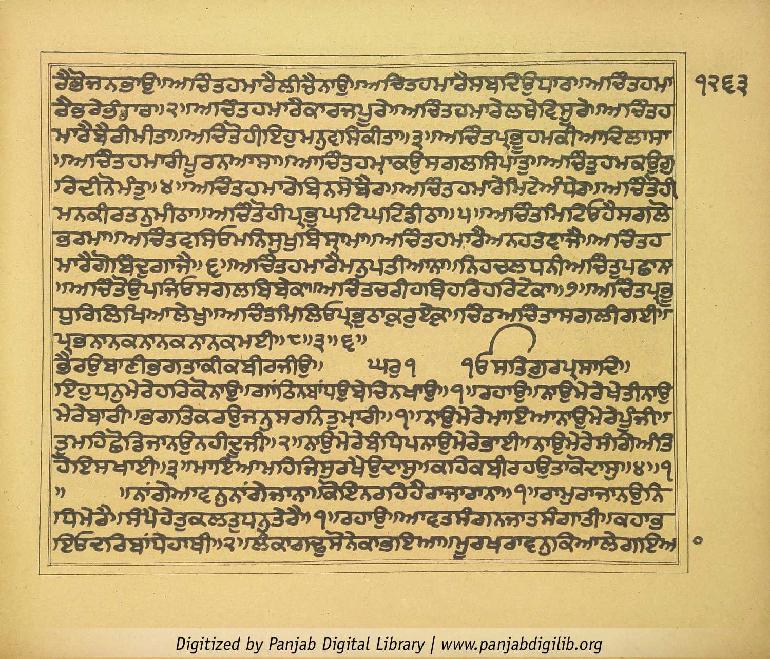 ਰੈਭੋਜਨਭਾਉ॥ਅਚਿੰਤਹਮਾਰੈਲੀਚੈਨਾਉ॥ਅਚਿੰਤਹਮਾਰੈਸਬਦਿਉਧਾਰ॥ਅਚਿੰਤਹਮਾ
ਰੈਭਰੇਭੰਡਾਰ॥੨॥ਅਚਿੰਤਹਮਾਰੈਕਾਰਜਪੂਰੇ॥ਅਚਿੰਤਹਮਾਰੈਲਥੇਵਿਸੂਰੇ॥ਅਚਿੰਤਹ
ਮਾਰੈਬੈਰੀਮੀਤਾ॥ਅਚਿੰਤੋਹੀਇਹੁਮਨੁਵਸਿਕੀਤਾ॥੩॥ਅਚਿੰਤਪ੍ਰਭੂਹਮਕੀਆਦਿਲਾਸਾ
॥ਅਚਿੰਤਹਮਾਰੀਪੂਰਨਆਸਾ॥ਅਚਿੰਤਹਮ੍ਹਾਕਉਸਗਲਸਿਧਾਂਤੁ॥ਅਚਿੰਤੁਹਮਕਉਗੁ
ਰਿਦੀਨੋਮੰਤੁ॥੪॥ਅਚਿੰਤਹਮਾਰੇਬਿਨਸੇਬੈਰ॥ਅਚਿੰਤਹਮਾਰੇਮਿਟੇਅੰਧੇਰ॥ਅਚਿੰਤੋਹੀ
ਮਨਕੀਰਤਨੁਮੀਠਾ॥ਅਚਿੰਤੋਹੀਪ੍ਰਭੁਘਟਿਘਟਿਡੀਠਾ॥੫॥ਅਚਿੰਤਮਿਟਿਓਹੈਸਗਲੋ
ਭਰਮਾ॥ਅਚਿੰਤਵਸਿਓਮਨਿਸੁਖਬਿਸ੍ਰਾਮਾ॥ਅਚਿੰਤਹਮਾਰੈਅਨਹਤਵਾਜੈ॥ਅਚਿੰਤਹ
ਮਾਰੈਗੋਬਿੰਦੁਗਾਜੈ॥੬॥ਅਚਿੰਤਹਮਾਰੈਮਨੁਪਤੀਆਨਾ॥ਨਿਹਚਲਧਨੀਅਚਿੰਤੁਪਛਾਨਾ
॥ਅਚਿੰਤੋਉਪਜਿਓਸਗਲਬਿਬੇਕਾ॥ਅਚਿੰਤਚਰੀਹਥਿਹਰਿਹਰਿਟੇਕਾ॥੭॥ਅਚਿੰਤਪ੍ਰਭੂ
ਧੁਰਿਲਿਖਿਆਲੇਖੁ॥ਅਚਿੰਤਮਿਲਿਓਪ੍ਰਭੁਠਾਕੁਰੁਏਕੁ॥ਚਿੰਤਅਚਿੰਤਾਸਗਲੀਗਈ॥
ਪ੍ਰਭਨਾਨਕਨਾਨਕਨਾਨਕਮਈ॥੮॥੩॥੬॥
ਭੈਰਉਬਾਣੀਭਗਤਾਕੀਕਬੀਰਜੀਉ॥ ਘਰੁ ੧ ੴਸਤਿਗੁਰਪ੍ਰਸਾਦਿ॥
ਇਹੁਧਨੁਮੇਰੇਹਰਿਕੋਨਾਉ॥ਗਾਂਠਿਨਬਾਧਉਬੇਚਿਨਖਾਉ॥੧॥ਰਹਾਉ॥ਨਾਉਮੇਰੇਖੇਤੀਨਾਉ
ਮੇਰੇਬਾਰੀ॥ਭਗਤਿਕਰਉਜਨੁਸਰਨਿਤੁਮਾਰੀ॥੧॥ਨਾਉਮੇਰੇਮਾਇਆਨਾਉਮੇਰੇਪੂੰਜੀ॥
ਤੁਮਹਿਛੋਡਿਜਾਨਉਨਹੀਦੂਜੀ॥੨॥ਨਾਉਮੇਰੇਬੰਧਿਪਨਾਉਮੇਰੇਭਾਈ॥ਨਾਉਮੇਰੇਸੰਗਿਅੰਤਿ
ਹੋਇਸਖਾਈ॥੩॥ਮਾਇਆਮਹਿਜਿਸੁਰਖੈਉਦਾਸੁ॥ਕਹਿਕਬੀਰਹਉਤਾਕੋਦਾਸੁ॥੪॥੧
॥ ॥ਨਾਂਗੇਆਵਨੁਨਾਂਗੇਜਾਨਾ॥ਕੋਇਨਰਹਿਹੈਰਾਜਾਰਾਨਾ॥੧॥ਰਾਮੁਰਾਜਾਨਉਨਿ
ਧਿਮੇਰੈ॥ਸੰਪੈਹੇਤੁਕਲਤੁਧਨੁਤੇਰੈ॥੧॥ਰਹਾਉ॥ਆਵਤਸੰਗਨਜਾਤਸੰਗਾਤੀ॥ਕਹਾਭ
ਇਓਦਰਿਬਾਂਧੇਹਾਥੀ॥੨॥ਲੰਕਾਗਢੁਸੋਨੇਕਾਭਇਆ॥ਮੂਰਖੁਰਾਵਨੁਕਿਆਲੇਗਇਆ
੧੨੬੩
Digitized by Panjab Digital Library | www.panjabdigilib.org